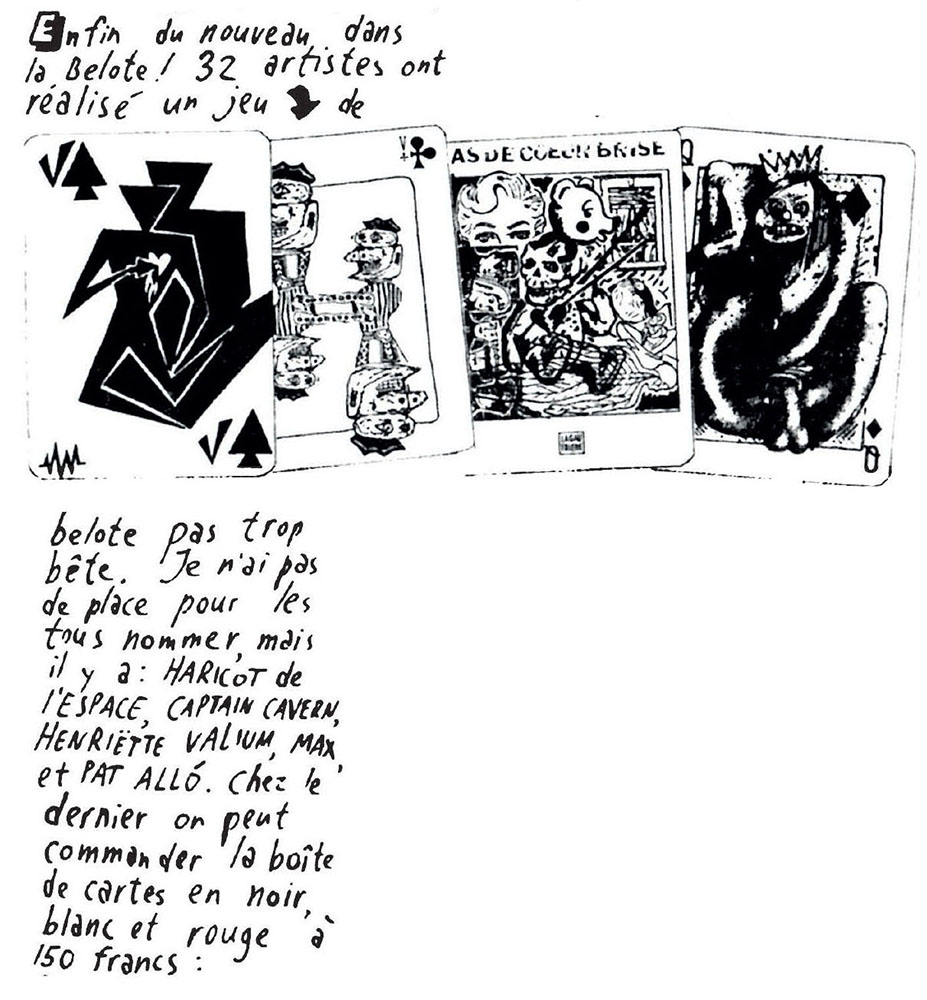 Enfin du nouveau dans
la Belote! 32 artistes ont
réalisé un jeu de
V
V
AS DE COEUR BRISÉ
Q
V
Q
belote pas trop
bête. Je n'ai pas
de place pour les
tous nommer, mais
il y a: HARICOT de
l'ESPACE, CAPTAIN CAVERN,
HENRIËTTE VALIUM, MAX,
et PAT ALLÓ. Chez le
dernier on peut
commander la boîte
de cartes en noir,
blanc et rouge à
150 francs :